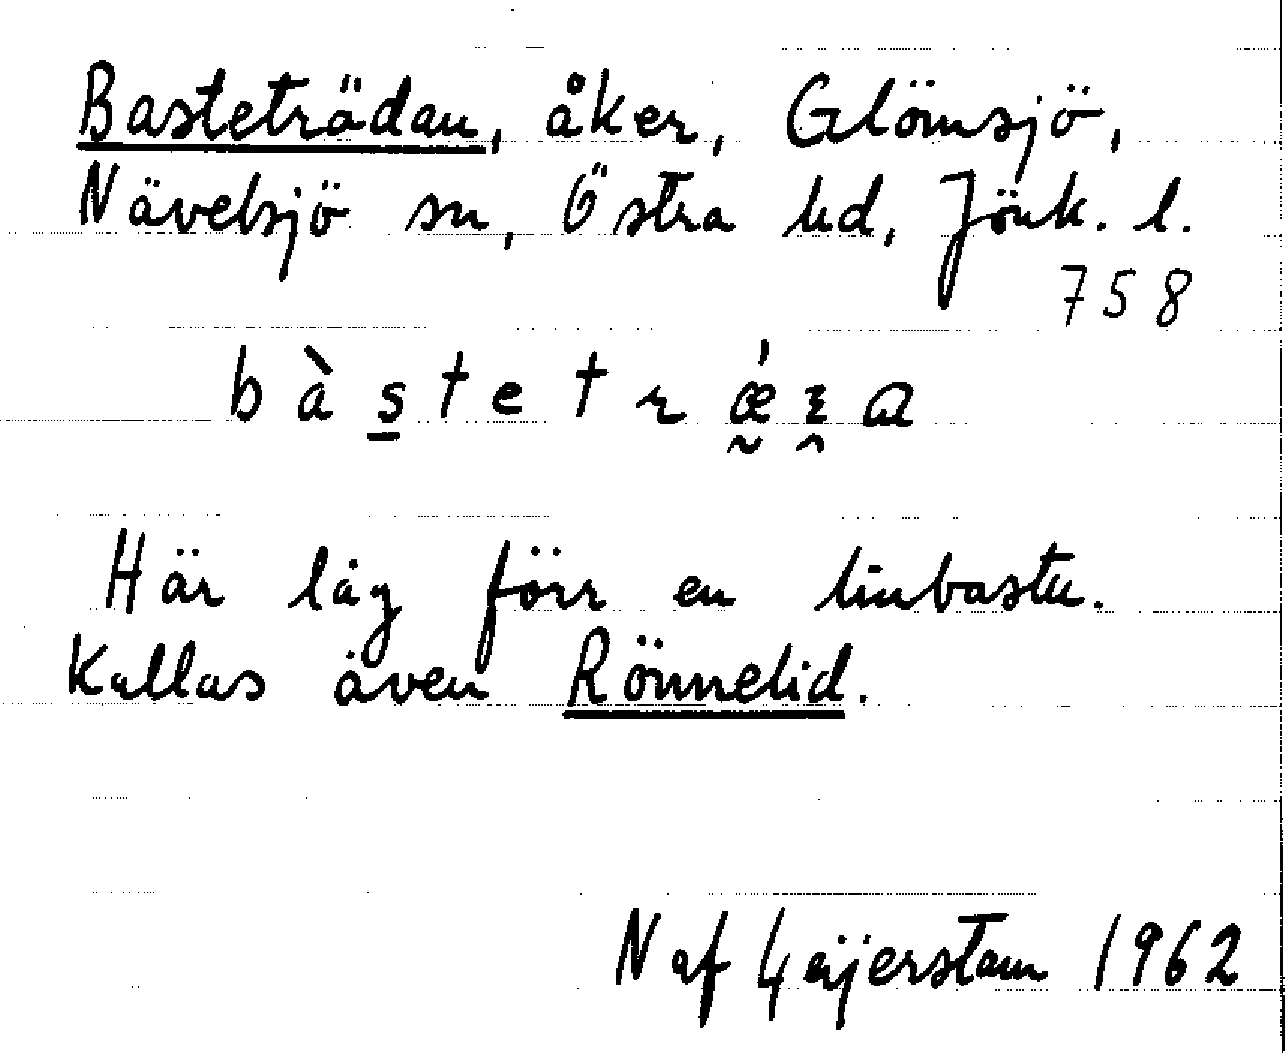 Basteträdan, åker, Glömsjö,
Nävelsjö sn, Östra hd, Jönk. l.
758
Här låg förr en linbastu.
Kallas även Rönnelid.
N af Geijerstam 1962